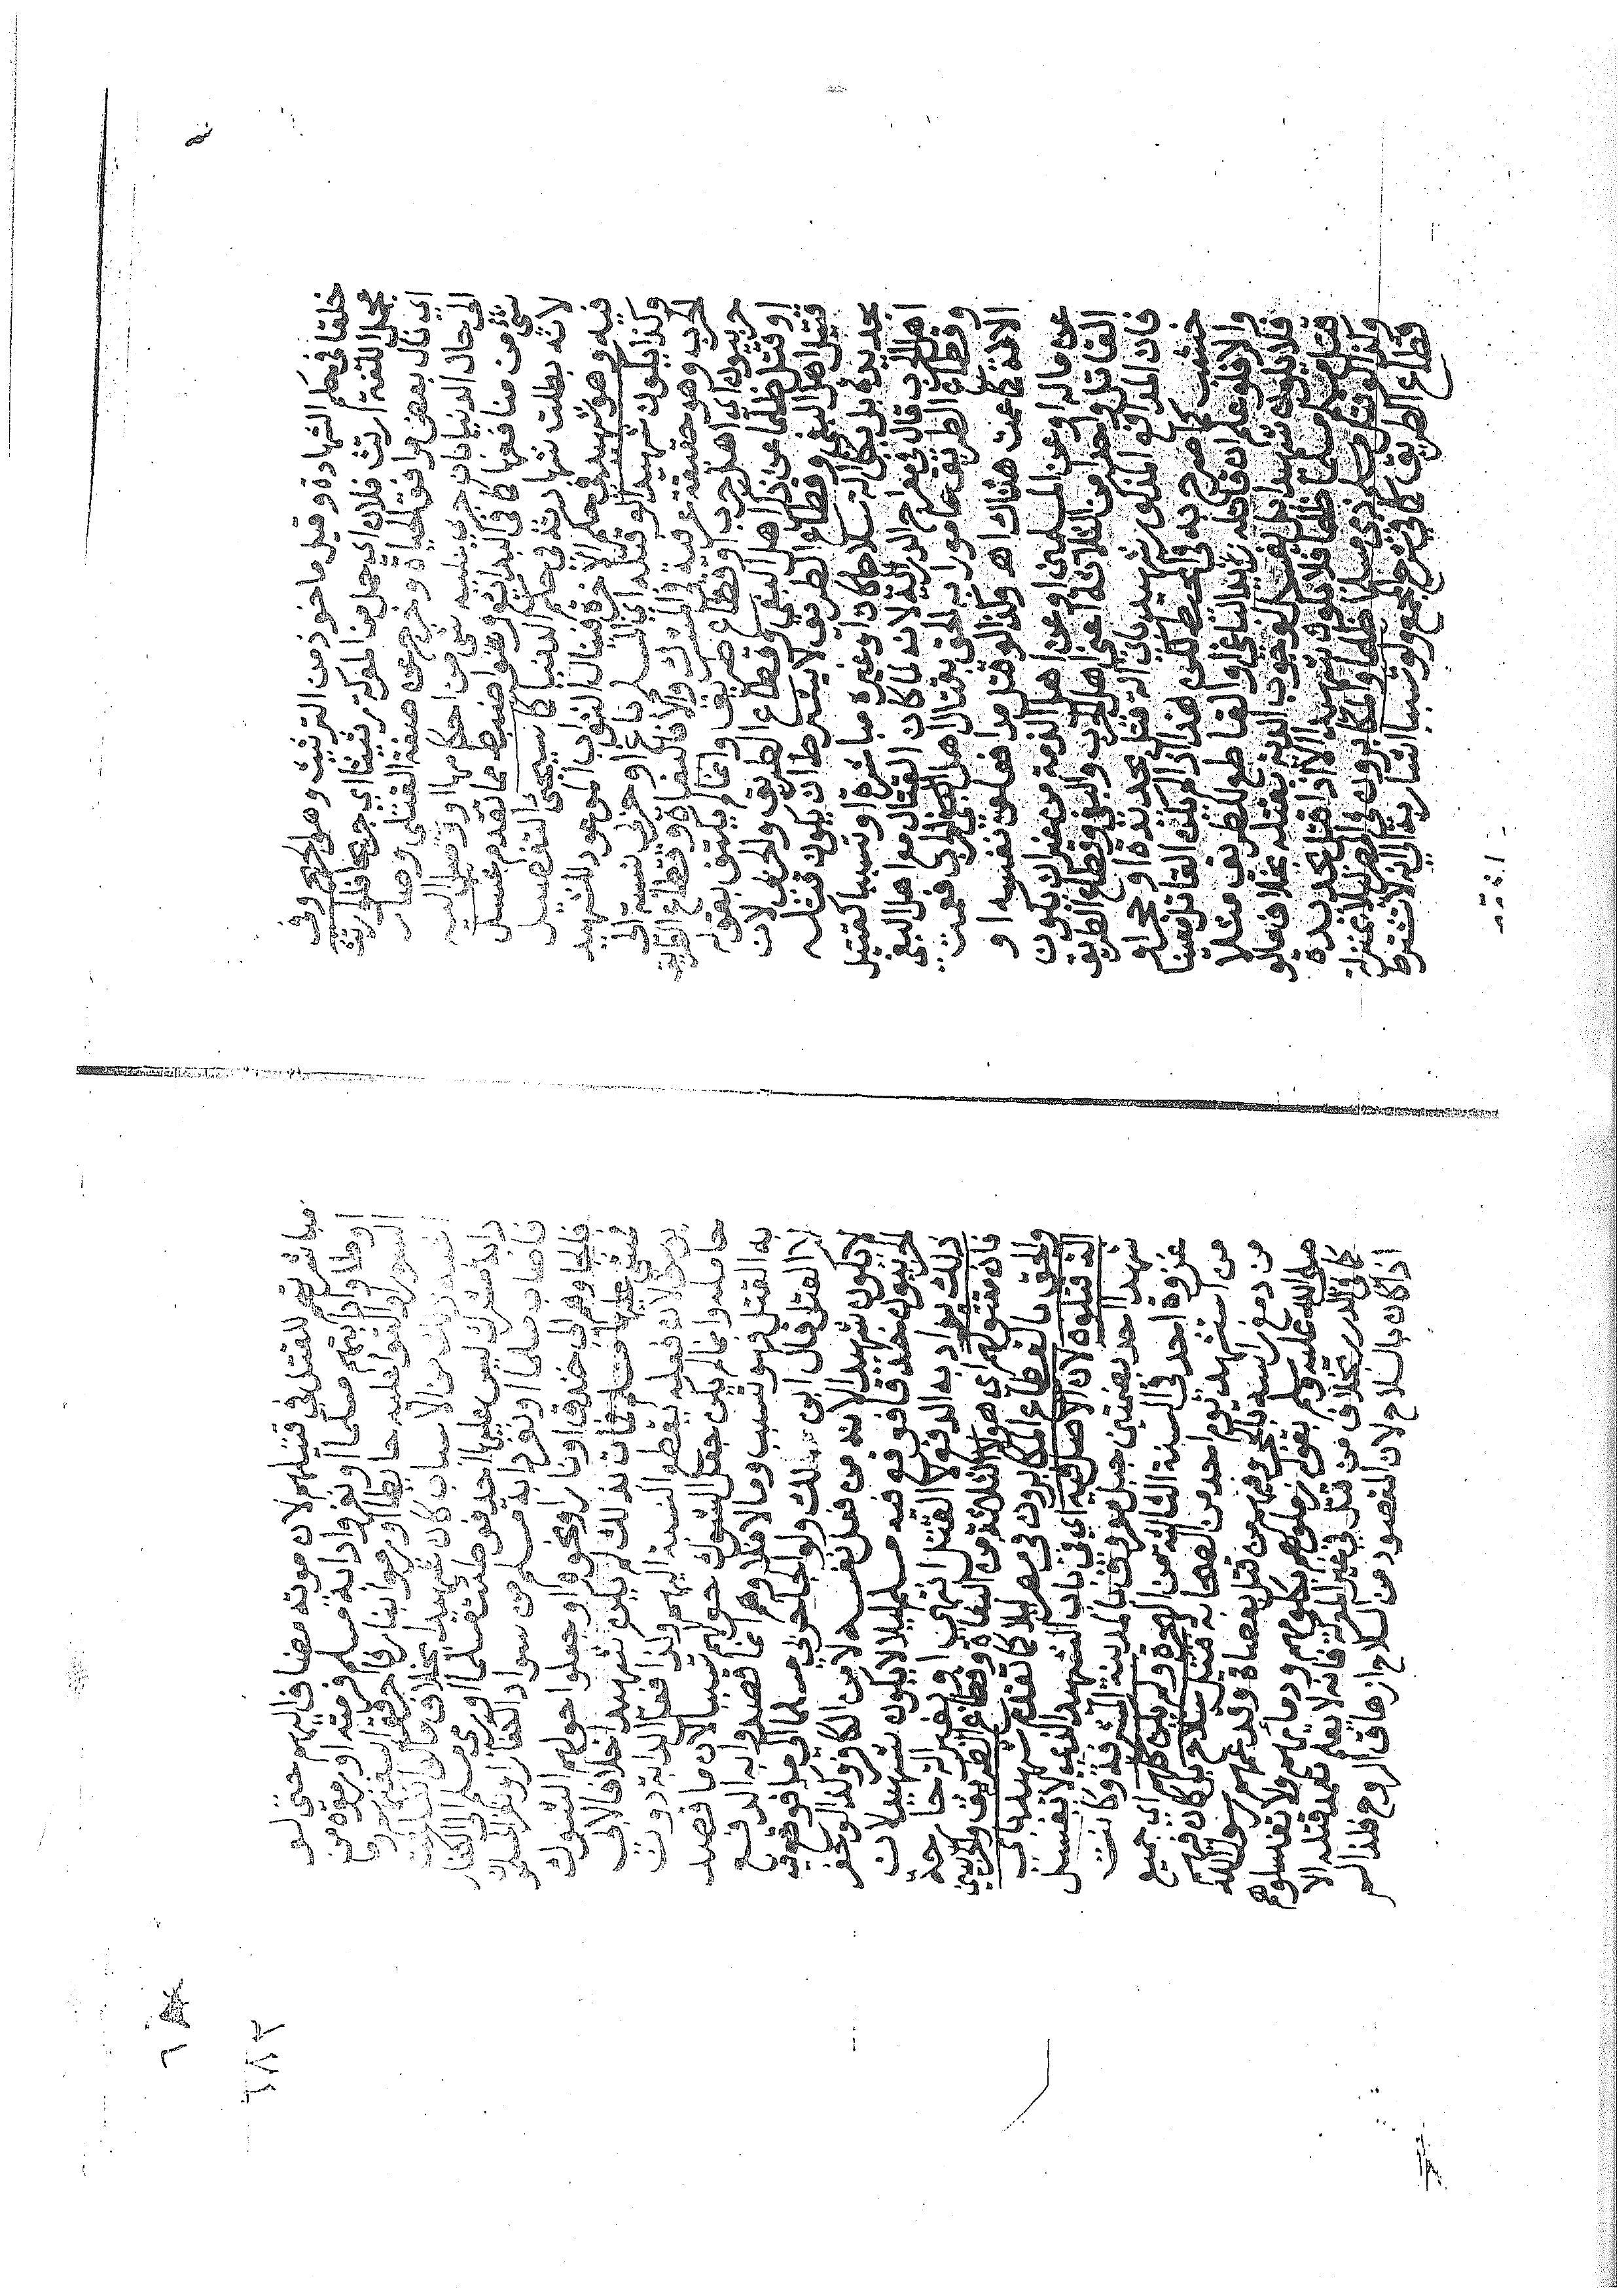 خلقا في حكم الشهادة وقيل ماخوذ من الترثيث وهو الجرح وفي
مجمل اللغة ارتث فلان اي حمل من المعركة رثيثا اي جريحا فلو ارتث
اي نال بعض مرافق الحياة وخرج عن صفة القتلى وصار
الى حال الدنيا بان جرى عليه شي من احكامها او وصل اليه
شي من منافعها كما في البدائع وهذا اضبط مما تقدم غسل
لانه بطلت شهادته في حكم الدنيا كما سيجي بالتفصيل
فيه وهو شهيد في حكم الاخرة فينال الثواب الموعود للشهيد
وكذا يكون شهيدا لو قتله اي المسلم باغ او حربي نسبة الى
الحرب وهو حقيقة عرفية في المشرك والا فالبغاة وقطاع الطريق
حربيون اي اهل حرب او قطاع طريق وانما لم يكتف بقوله
او قتل ظلما عن ذكر اهل البغي وقطاع الطريق والحرب لان
قتيل اهل البغي وقطاع الطريق لا يشترط ان يكون قتله
بحديدة بل بكل الة سلاحا كانت او غيره مباشرة او تسببا كقتيل
اهل الحرب قال في معراج الدراية لانه لما كان القتال مع اهل البغي
وقطاع الطريق مامورا به الحق بقتال اهل الحرب فعمت
الالة كما عمت هناك اه وكذا لو قتل مدافعا عن نفسه او
عن ماله او عن المسلمين او عن اهل الذمة من غير ان يكون
القاتل واحدا من الثلاثة اعني اهل الحرب والبغي وقطاع الطريق
فان المدافع المذكور شهيد باي الة قتل بحديدة او حجر او
خشب كما صرح به في المحيط لكن هذا اذا لم يكن القاتل معينا
والا فلو علم ان قاتله زيد الباغي او القاطع للطريق مثلا
فلا يكون شهيدا بل يغسل لوجوب الدية بقتله بخلاف ما لو
قتله مسلم ظلما فلا يكون شهيدا الا اذا قتل بحديدة
وكذا لو قتل ذمي مسلما ظلما والمكابرون في المصر ليلا بمنزلة
قطاع الطريق كما في شرح المجمع ولو تسببا اشار به الى انه لا تشترط
مباشرتهم للقتل في قتيلهم لان موته مضافا اليهم حتى لو
اوطاوا دابتهم مسلما او نفروا دابة مسلم فرمته او رموه من
السور او القوا عليه حايطا او رموا بنار فاحرقوا
من الاسباب كان شهيدا بخلاف ما لو انفلتت
دابة مشرك ليس عليها احد فوطئت مسلما او رمى مسلم الى الكفار
فاصاب مسلما او نفرت دابة مسلم من سواد الكفار او نفر المسلمون
فالجاوهم الى خندق او نار او نحوه او جعلوا حولهم الشوك
فمشى عليها مسلم فمات بذلك لم يكن شهيدا خلافا لابي
يوسف لان فعله يقطع النسبة اليهم وكذا فعل الدابة دون
حاملها وانما لم يكن جعل الشوك حولهم تسبيبا لان ما قصد
به القتل فهو تسبب وما لا فلا وهم انما قصدوا به الدفع
لا القتل قال ابن ملك ولو الجا حربي مسلما الى ما فوقه
لا يكون شهيدا لانه من فعل نفسه لا من الكافر وكذا لو حفر
الحربيون خندقا فوقع فيه مسلم ليلا لا يكون شهيدا لان
ذلك يراد به الدفع لا القتل انتهى او بغير الة جارحة
فان مقتولهم اي هولاء الثلاثة من البغاة وقطاع الطريق والحربيين
والحق بالقطاع المكابرون في مصر ليلا كما تقدم شهيد باي
الة قتلوه لان الاصل فيه اي في باب الشهيد الذي لا يغسل
شهدا احد بضمتين جبل معروف بالمدينة الشريفة وكانت
غزوة احد في السنة الثالثة من الهجرة ولم يكن كلهم اي جميع
من استشهد يوم احد من الصحابة قتيل سلاح بل كان فيهم
من دمغ راسه بالحجر وفيهم من قتل بعصاة وقد عمهم رسول الله
صلى الله عليه وسلم بقوله زملوهم بكلومهم ودمائهم ولا تغسلوهم
كما في الدرر بخلاف من قتل في غير المعركة فانه لا يعلم تعمد قتله الا
اذا كان بالسلاح لان المقصود من السلاح ازهاق الروح فلذا لم